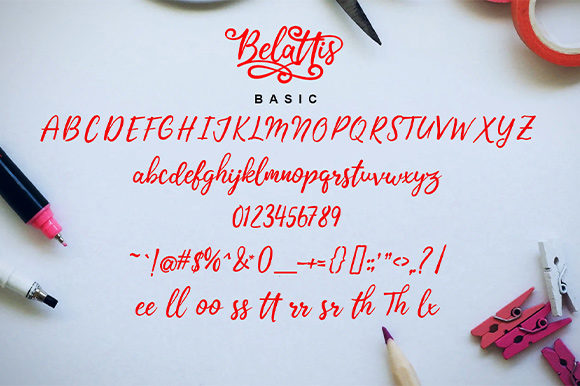 Belattis
BASIC
ABCDEFGHIJKLMNOPQRSTUVWXYZ
abcdefghijklmnopqrstuvwxyz
0123456789
~`!@#$%^&*()__-+={}[]:;'"<>,.?/|
ee ll oo ss tt rr sr th Th lx